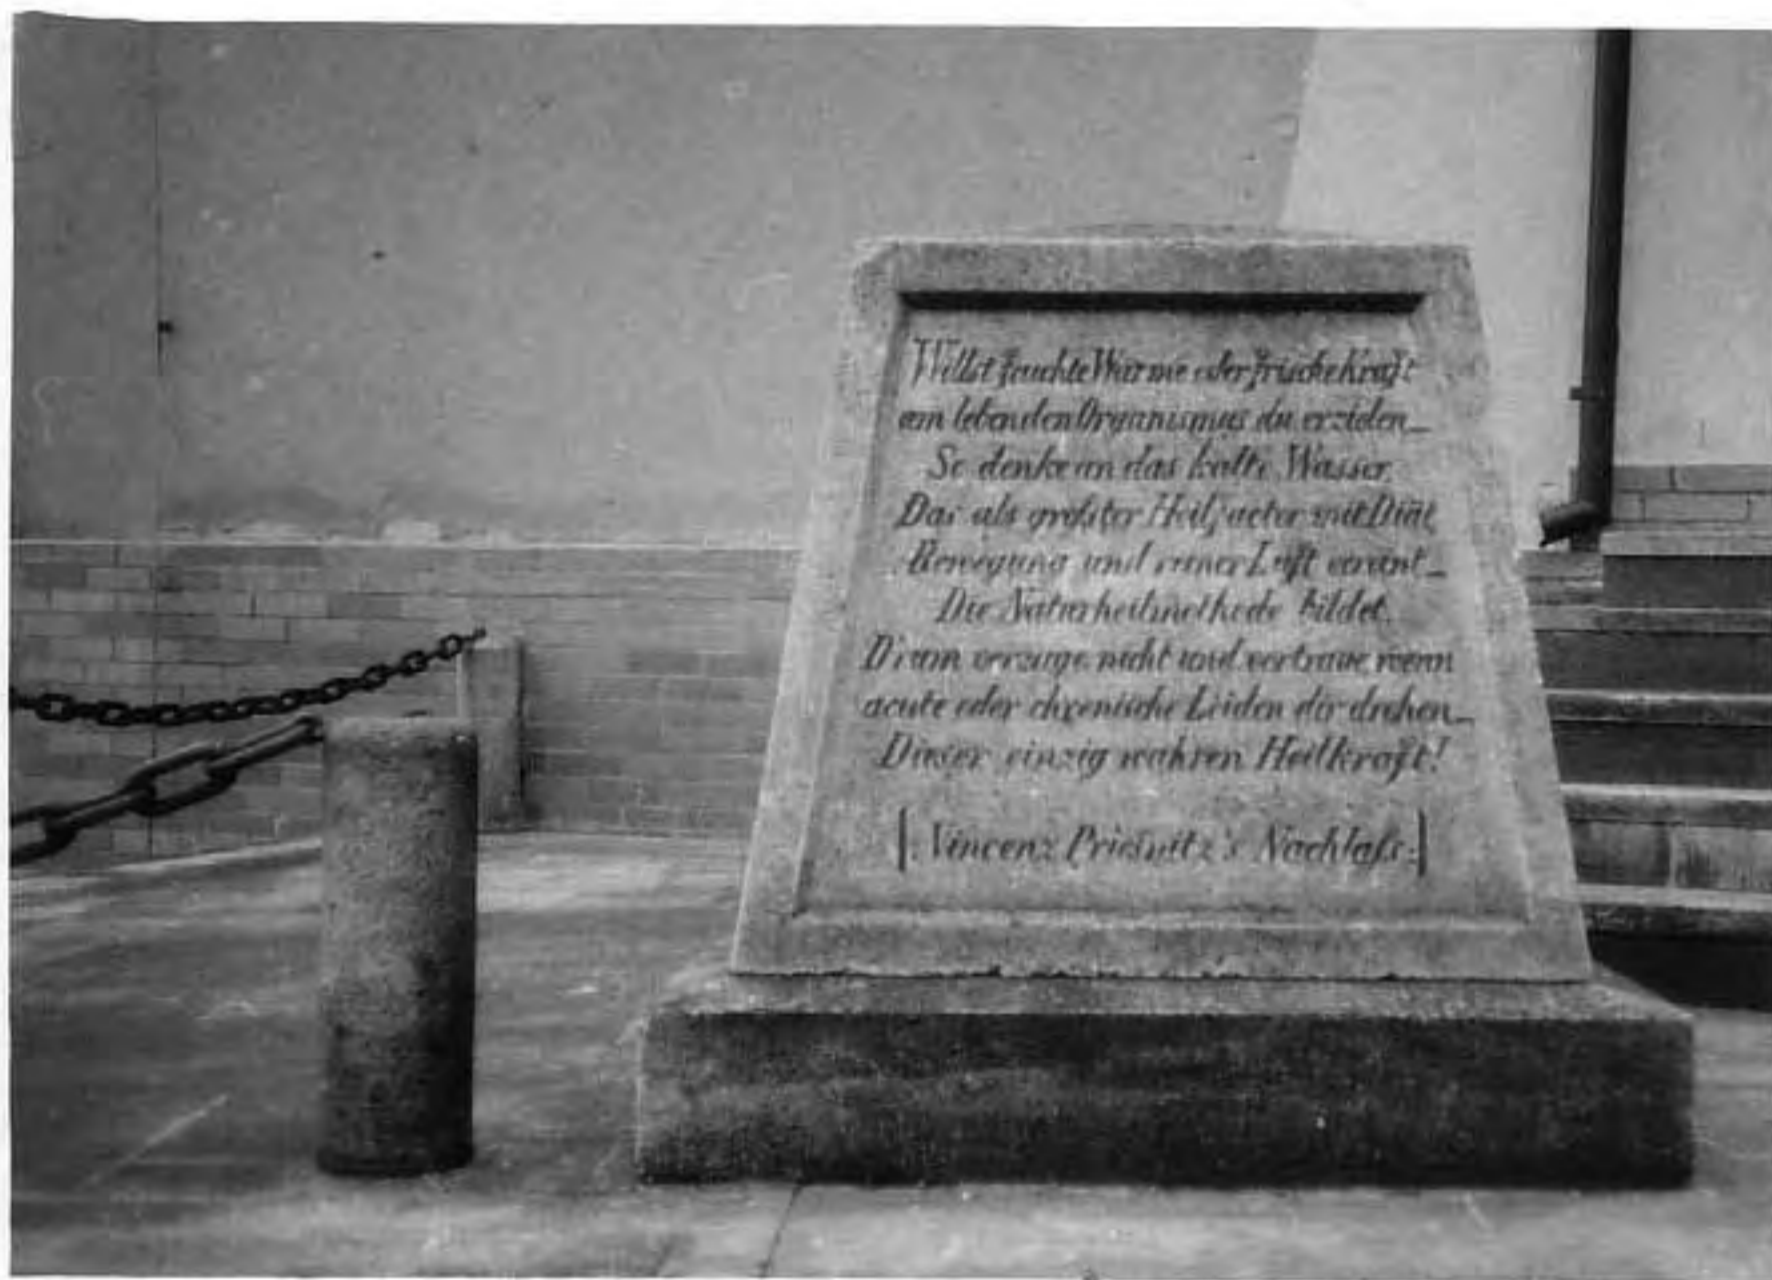 Willst feuchte Wärme oder frische Kraft
am lebenden Organismus du erzielen_
So denke an das kalte Wasser,
Das als größter Heilfactor mit Diät,
Bewegung und reiner Luft vereint_
Die Naturheilmethode bildet.
Drum verzage nicht und vertraue, wenn
acute oder chronische Leiden dir drohen_
Dieser einzig wahren Heilkraft!
|: Vincenz Prießnitz's Nachlaß :|